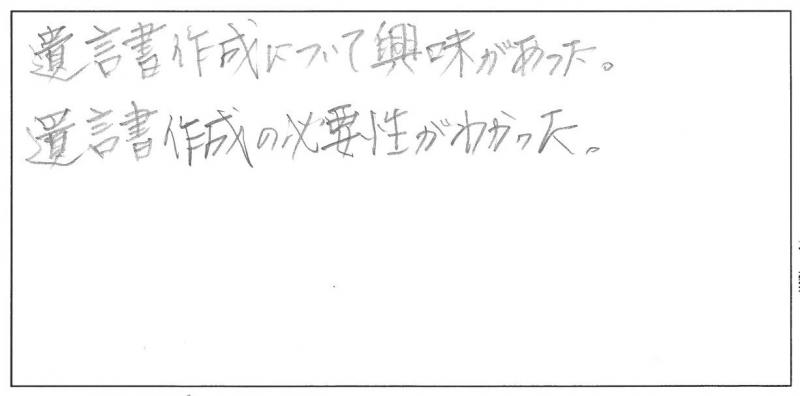 遺言書作成について興味があった。
遺言書作成の必要性がわかった。